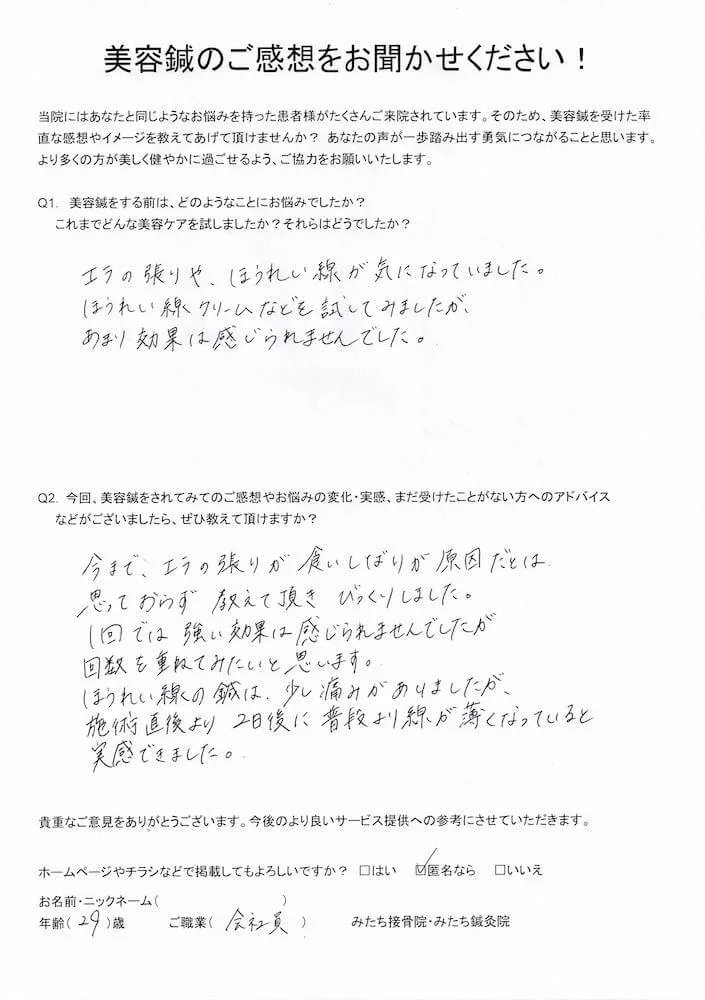 美容鍼のご感想をお聞かせください！
当院にはあなたと同じようなお悩みを持った患者様がたくさんご来院されています。そのため、美容鍼を受けた率
直な感想やイメージを教えてあげて頂けませんか？ あなたの声が一歩踏み出す勇気につながることと思います。
より多くの方が美しく健やかに過ごせるよう、ご協力をお願いいたします。
Q1. 美容鍼をする前は、どのようなことにお悩みでしたか？
これまでどんな美容ケアを試しましたか？それらはどうでしたか？
エラの張りや、ほうれい線が気になっていました。
ほうれい線クリームなどを試してみましたが、
あまり効果は感じられませんでした。
Q2. 今回、美容鍼をされてみてのご感想やお悩みの変化・実感、まだ受けたことがない方へのアドバイス
などがございましたら、ぜひ教えて頂けますか？
今まで、エラの張りが食いしばりが原因だとは
思っておらず 教えて頂き びっくりしました。
1回では強い効果は感じられませんでしたが
回数を重ねてみたいと思います。
ほうれい線の鍼は、少し痛みがありましたが、
施術直後より 2日後に普段より線が薄くなっていると
実感できました。
貴重なご意見をありがとうございます。今後のより良いサービス提供への参考にさせていただきます。
ホームページやチラシなどで掲載してもよろしいですか？ □はい ☑匿名なら □いいえ
お名前・ニックネーム（ ）
年齢（ 29 ）歳 ご職業（ 会社員 ） みたち接骨院・みたち鍼灸院